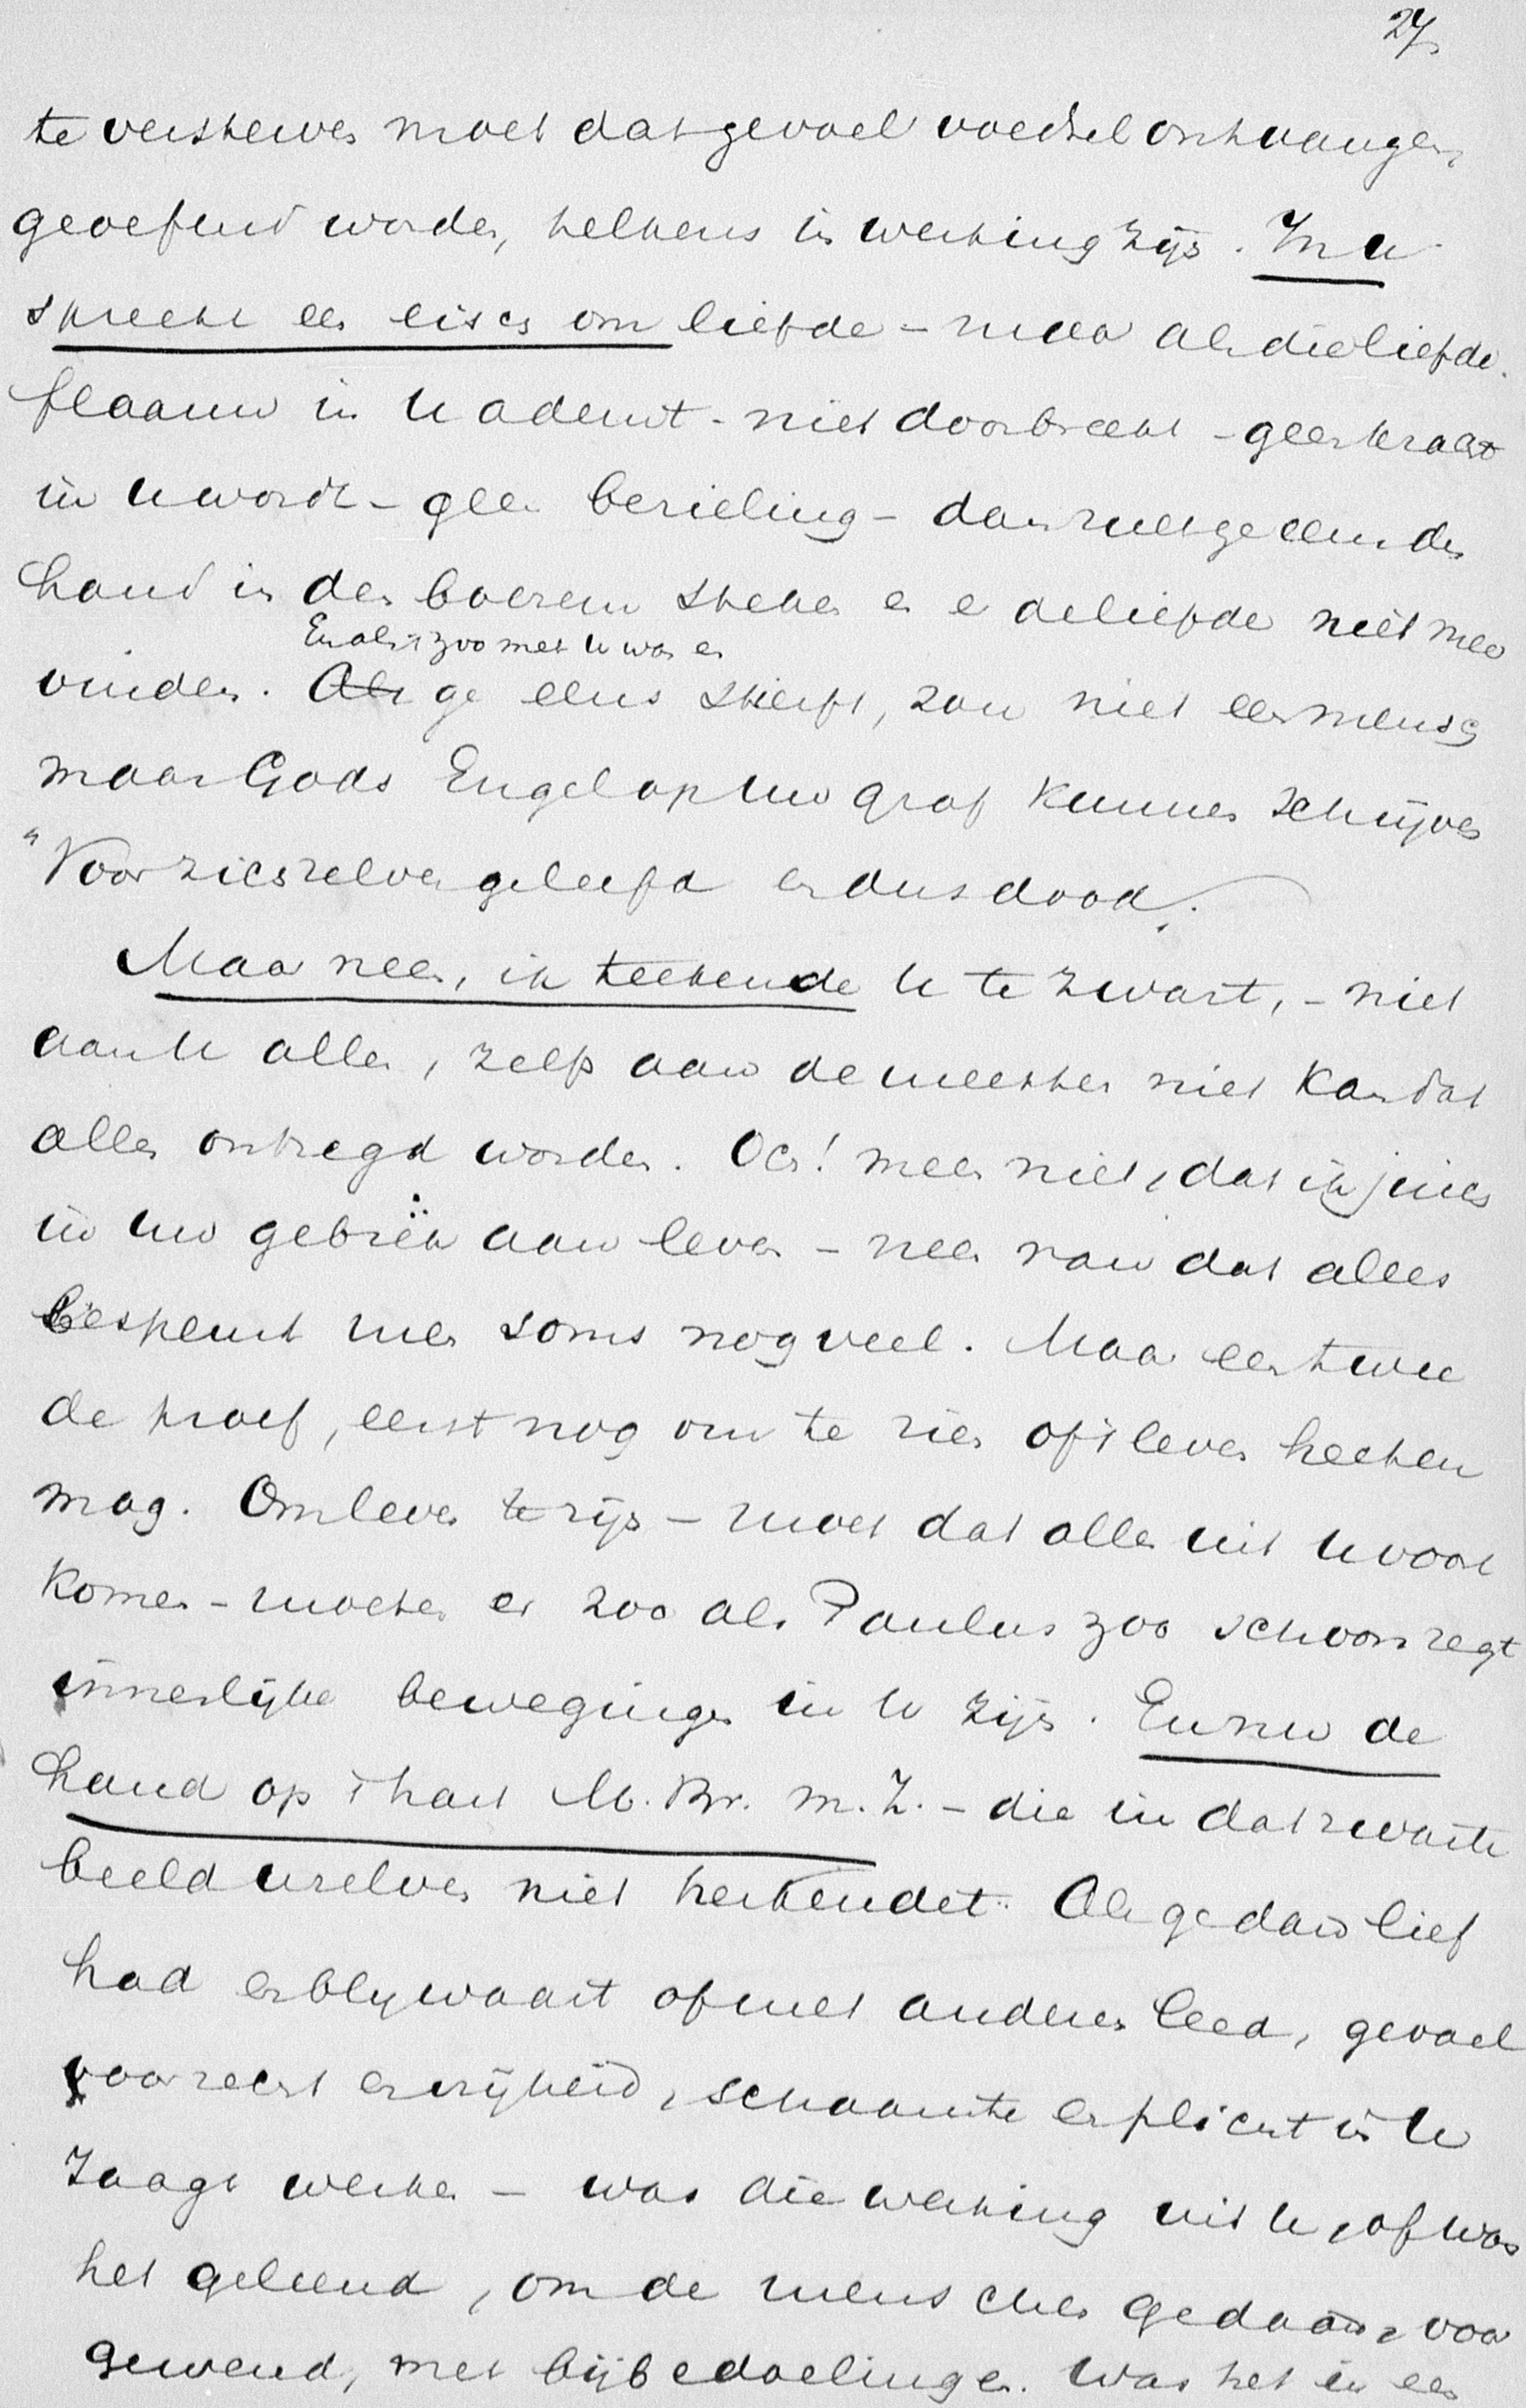 27,
te versterven moet dat gevoel voedsel ontvangen,
geoefend worden, telkens in werking zijn. In u
spreekt een eisch om liefde – maar als die liefde
flaauw in u ademt – niet doorbreekt – geen kracht
in u wordt – geen bezieling – dan moet ge eens den
hand in den boezem steken en er de liefde niet meer
En als 't zoo met u was en
vinden. Als ge eens stierft, zou niet een mensch
maar Gods Engel op uw graf kunnen schrijven
"Voor zichzelven geleefd en dus dood."
Maar neen, ik teekende u te zwart, – niet
aan u allen, zelfs aan de meesten niet kan dat
alles ontzegd worden. Och! meen niet, dat ik juich
in uw gebrek aan leven – neen van dat alles
bespeurt men soms nog veel. Maar een twee
de proef, eerst nog om te zien of 't leven heeten
mag. Om leven te zijn – moet dat alles uit u voort
komen – moeten er zoo als Paulus zoo schoon zegt
innerlijke bewegingen in u zijn. En nu de
hand op 't hart M. Br. m. Z. – die in dat zwarte
beeld uzelven niet herkendet. Als ge dan lief
had en blij waart of met anderen leed, gevoel
voor recht en vrijheid, schaamte en plicht in u
zaagt werken – was die werking uit u, of was
het geleend, om de menschen gedaan, voor
gewend, met bijbedoelingen. Was het in een